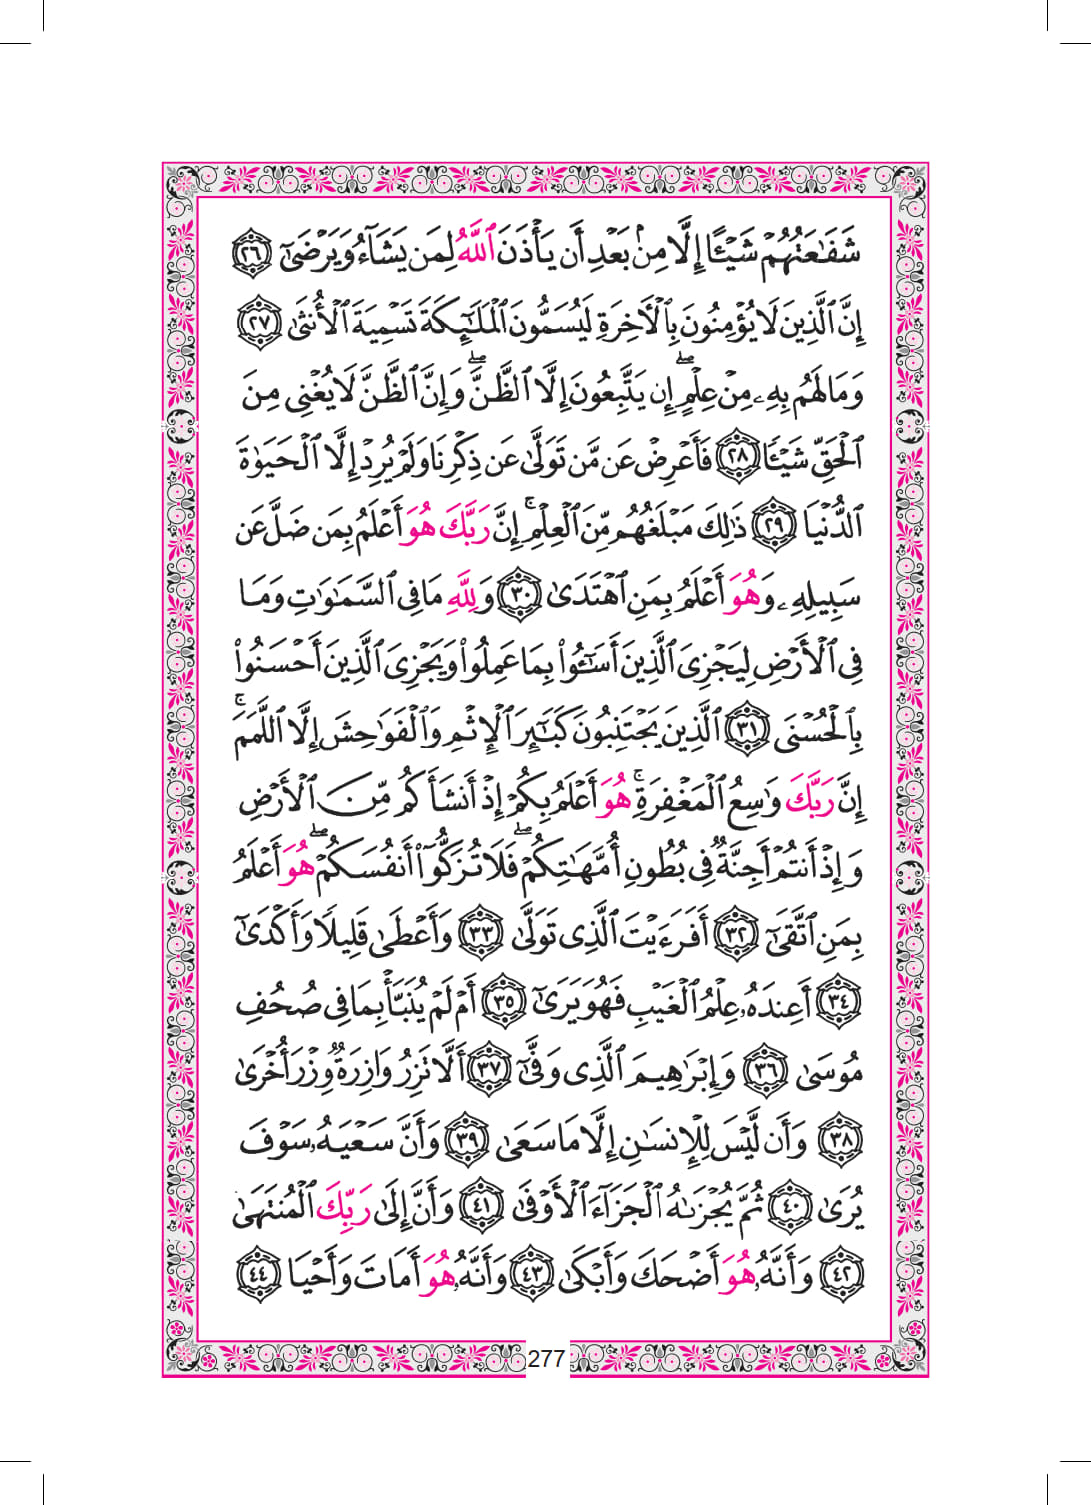 شَفَـٰعَتُهُمْ شَيْـًٔا إِلَّا مِنۢ بَعْدِ أَن يَأْذَنَ ٱللَّهُ لِمَن يَشَآءُ وَيَرْضَىٰٓ ٢٦
إِنَّ ٱلَّذِينَ لَا يُؤْمِنُونَ بِٱلْـَٔاخِرَةِ لَيُسَمُّونَ ٱلْمَلَـٰٓئِكَةَ تَسْمِيَةَ ٱلْأُنثَىٰ ٢٧
وَمَا لَهُم بِهِۦ مِنْ عِلْمٍ ۖ إِن يَتَّبِعُونَ إِلَّا ٱلظَّنَّ ۖ وَإِنَّ ٱلظَّنَّ لَا يُغْنِى مِنَ
ٱلْحَقِّ شَيْـًٔا ٢٨ فَأَعْرِضْ عَن مَّن تَوَلَّىٰ عَن ذِكْرِنَا وَلَمْ يُرِدْ إِلَّا ٱلْحَيَوٰةَ
ٱلدُّنْيَا ٢٩ ذَٰلِكَ مَبْلَغُهُم مِّنَ ٱلْعِلْمِ ۚ إِنَّ رَبَّكَ هُوَ أَعْلَمُ بِمَن ضَلَّ عَن
سَبِيلِهِۦ وَهُوَ أَعْلَمُ بِمَنِ ٱهْتَدَىٰ ٣٠ وَلِلَّهِ مَا فِى ٱلسَّمَـٰوَٰتِ وَمَا
فِى ٱلْأَرْضِ لِيَجْزِىَ ٱلَّذِينَ أَسَـٰٓـُٔوا۟ بِمَا عَمِلُوا۟ وَيَجْزِىَ ٱلَّذِينَ أَحْسَنُوا۟
بِٱلْحُسْنَى ٣١ ٱلَّذِينَ يَجْتَنِبُونَ كَبَـٰٓئِرَ ٱلْإِثْمِ وَٱلْفَوَٰحِشَ إِلَّا ٱللَّمَمَ ۚ
إِنَّ رَبَّكَ وَٰسِعُ ٱلْمَغْفِرَةِ ۚ هُوَ أَعْلَمُ بِكُمْ إِذْ أَنشَأَكُم مِّنَ ٱلْأَرْضِ
وَإِذْ أَنتُمْ أَجِنَّةٌ فِى بُطُونِ أُمَّهَـٰتِكُمْ ۖ فَلَا تُزَكُّوٓا۟ أَنفُسَكُمْ ۖ هُوَ أَعْلَمُ
بِمَنِ ٱتَّقَىٰٓ ٣٢ أَفَرَءَيْتَ ٱلَّذِى تَوَلَّىٰ ٣٣ وَأَعْطَىٰ قَلِيلًا وَأَكْدَىٰٓ
٣٤ أَعِندَهُۥ عِلْمُ ٱلْغَيْبِ فَهُوَ يَرَىٰٓ ٣٥ أَمْ لَمْ يُنَبَّأْ بِمَا فِى صُحُفِ
مُوسَىٰ ٣٦ وَإِبْرَٰهِيمَ ٱلَّذِى وَفَّىٰٓ ٣٧ أَلَّا تَزِرُ وَازِرَةٌ وِزْرَ أُخْرَىٰ
٣٨ وَأَن لَّيْسَ لِلْإِنسَـٰنِ إِلَّا مَا سَعَىٰ ٣٩ وَأَنَّ سَعْيَهُۥ سَوْفَ
يُرَىٰ ٤٠ ثُمَّ يُجْزَىٰهُ ٱلْجَزَآءَ ٱلْأَوْفَىٰ ٤١ وَأَنَّ إِلَىٰ رَبِّكَ ٱلْمُنتَهَىٰ
٤٢ وَأَنَّهُۥ هُوَ أَضْحَكَ وَأَبْكَىٰ ٤٣ وَأَنَّهُۥ هُوَ أَمَاتَ وَأَحْيَا ٤٤
277